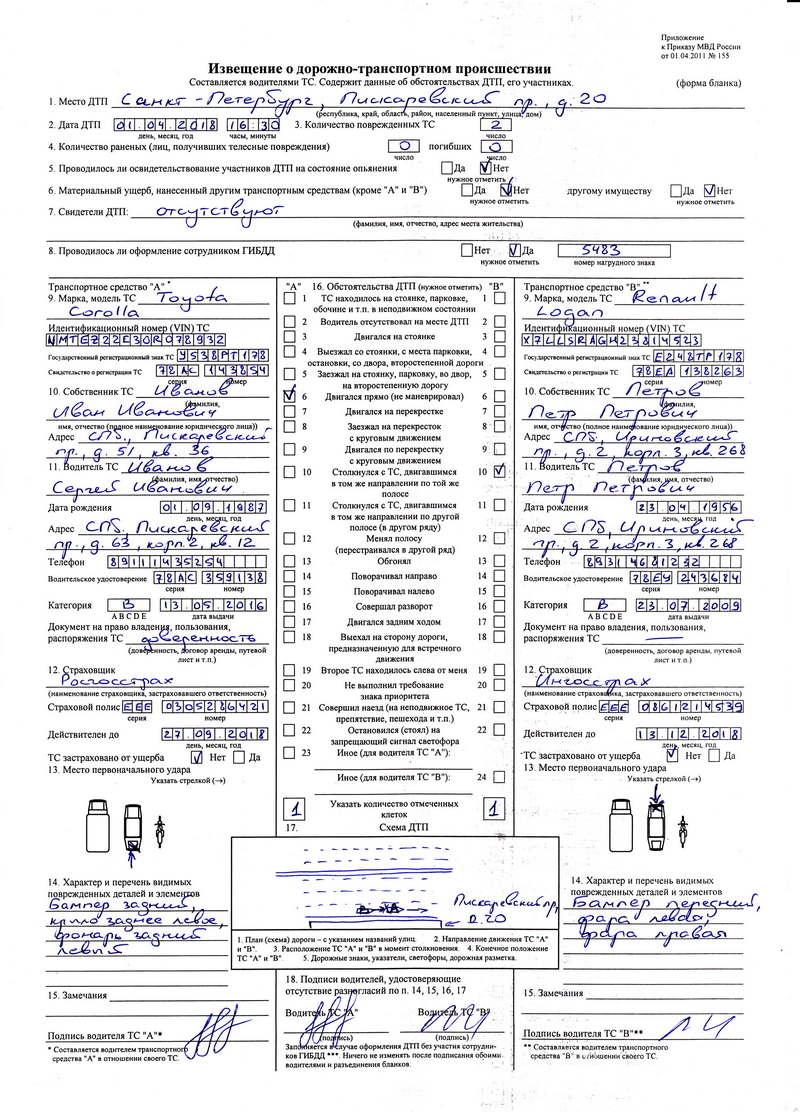 Приложение
к Приказу МВД России
от 01.04.2011 № 155
Извещение о дорожно-транспортном происшествии
Составляется водителями ТС. Содержит данные об обстоятельствах ДТП, его участниках.
(форма бланка)
1. Место ДТП Санкт-Петербург, Пискаревский пр., д. 20
(республика, край, область, район, населенный пункт, улица, дом)
2. Дата ДТП 01.04.2018 16:30 3. Количество поврежденных ТС 2
день, месяц, год часы, минуты число
4. Количество раненых (лиц, получивших телесные повреждения) 0 погибших 0
число число
5. Проводилось ли освидетельствование участников ДТП на состояние опьянения Да Нет
нужное отметить
6. Материальный ущерб, нанесенный другим транспортным средствам (кроме "А" и "В") Да Нет другому имуществу Да Нет
нужное отметить нужное отметить
7. Свидетели ДТП: отсутствуют
(фамилия, имя, отчество, адрес места жительства)
8. Проводилось ли оформление сотрудником ГИБДД Нет Да 5483
нужное отметить номер нагрудного знака
Транспортное средство "А" *
9. Марка, модель ТС Toyota
Corolla
Идентификационный номер (VIN) ТС
NMTEZ22E30R078932
Государственный регистрационный знак ТС У538РТ178
Свидетельство о регистрации ТС 78АС 143854
серия номер
10. Собственник ТС Иванов
(фамилия,
Иван Иванович
имя, отчество (полное наименование юридического лица))
Адрес СПб, Пискаревский
пр., д. 51, кв. 36
11. Водитель ТС Иванов
(фамилия, имя, отчество)
Сергей Иванович
Дата рождения 01.09.1987
день, месяц, год
Адрес СПб. Пискаревский
пр., д. 63, корп. 2, кв. 12
Телефон 89111435254
Водительское удостоверение 78АС 359138
серия номер
Категория В 13.05.2016
A B C D E дата выдачи
Документ на право владения, пользования,
распоряжения ТС доверенность
(доверенность, договор аренды, путевой
лист и т.п.)
12. Страховщик
Росгосстрах
(наименование страховщика, застраховавшего ответственность)
Страховой полис ЕЕЕ 0305286421
серия номер
Действителен до 27.09.2018
день, месяц, год
ТС застраховано от ущерба Нет Да
13. Место первоначального удара
Указать стрелкой (→)
14. Характер и перечень видимых
поврежденных деталей и элементов
Бампер задний,
крыло заднее левое,
фонарь задний
левый
15. Замечания
Подпись водителя ТС "А"*
* Составляется водителем транспортного
средства "А" в отношении своего ТС.
"А" 16. Обстоятельства ДТП (нужное отметить) "В"
1 ТС находилось на стоянке, парковке, 1
обочине и т.п. в неподвижном состоянии
2 Водитель отсутствовал на месте ДТП 2
3 Двигался на стоянке 3
4 Выезжал со стоянки, с места парковки, 4
остановки, со двора, второстепенной дороги
5 Заезжал на стоянку, парковку, во двор, 5
на второстепенную дорогу
6 Двигался прямо (не маневрировал) 6
7 Двигался на перекрестке 7
8 Заезжал на перекресток 8
с круговым движением
9 Двигался по перекрестку 9
с круговым движением
10 Столкнулся с ТС, двигавшимся 10
в том же направлении по той же
полосе
11 Столкнулся с ТС, двигавшимся 11
в том же направлении по другой
полосе (в другом ряду)
12 Менял полосу 12
(перестраивался в другой ряд)
13 Обгонял 13
14 Поворачивал направо 14
15 Поворачивал налево 15
16 Совершал разворот 16
17 Двигался задним ходом 17
18 Выехал на сторону дороги, 18
предназначенную для встречного
движения
19 Второе ТС находилось слева от меня 19
20 Не выполнил требование 20
знака приоритета
21 Совершил наезд (на неподвижное ТС, 21
препятствие, пешехода и т.п.)
22 Остановился (стоял) на 22
запрещающий сигнал светофора
23 Иное (для водителя ТС "А"):
Иное (для водителя ТС "В"): 24
1 Указать количество отмеченных 1
клеток
17. Схема ДТП
Пискаревский пр,
В А
д. 20
1. План (схема) дороги – с указанием названий улиц. 2. Направление движения ТС "А"
и "В". 3. Расположение ТС "А" и "В" в момент столкновения. 4. Конечное положение
ТС "А" и "В" 5. Дорожные знаки, указатели, светофоры, дорожная разметка.
18. Подписи водителей, удостоверяющие
отсутствие разногласий по п. 14, 15, 16, 17
Водитель ТС "А" Водитель ТС "В"
(подпись) (подпись)
Заполняется в случае оформления ДТП без участия сотрудни-
ков ГИБДД ***. Ничего не изменять после подписания обоими
водителями и разъединения бланков.
Транспортное средство "В" **
9. Марка, модель ТС Renault
Logan
Идентификационный номер (VIN) ТС
X7LLSRAGH23814523
Государственный регистрационный знак ТС Е248ТР178
Свидетельство о регистрации ТС 78ЕА 138263
серия номер
10. Собственник ТС Петров
(фамилия,
Петр Петрович
имя, отчество (полное наименование юридического лица))
Адрес СПб, Ириновский
пр., д. 2, корп. 3, кв. 268
11. Водитель ТС Петров
(фамилия, имя, отчество)
Петр Петрович
Дата рождения 23.04.1956
день, месяц, год
Адрес СПб, Ириновский
пр., д. 2, корп. 3, кв. 268
Телефон 89314681232
Водительское удостоверение 78ЕУ 243684
серия номер
Категория В 23.07.2009
A B C D E дата выдачи
Документ на право владения, пользования,
распоряжения ТС —
(доверенность, договор аренды, путевой
лист и т.п.)
12. Страховщик
Ингосстрах
(наименование страховщика, застраховавшего ответственность)
Страховой полис ЕЕЕ 0861214539
серия номер
Действителен до 13.12.2018
день, месяц, год
ТС застраховано от ущерба Нет Да
13. Место первоначального удара
Указать стрелкой (→)
14. Характер и перечень видимых
поврежденных деталей и элементов
Бампер передний,
фара левая,
фара правая
15. Замечания
Подпись водителя ТС "В"**
** Составляется водителем транспортного
средства "В" в отношении своего ТС.